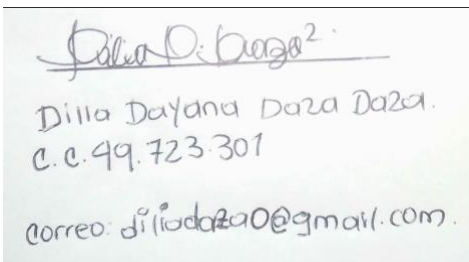 Dilia D. Daza².
Dilia Dayana Daza Daza.
C.C. 49.723.301
correo: diliadaza0@gmail.com.